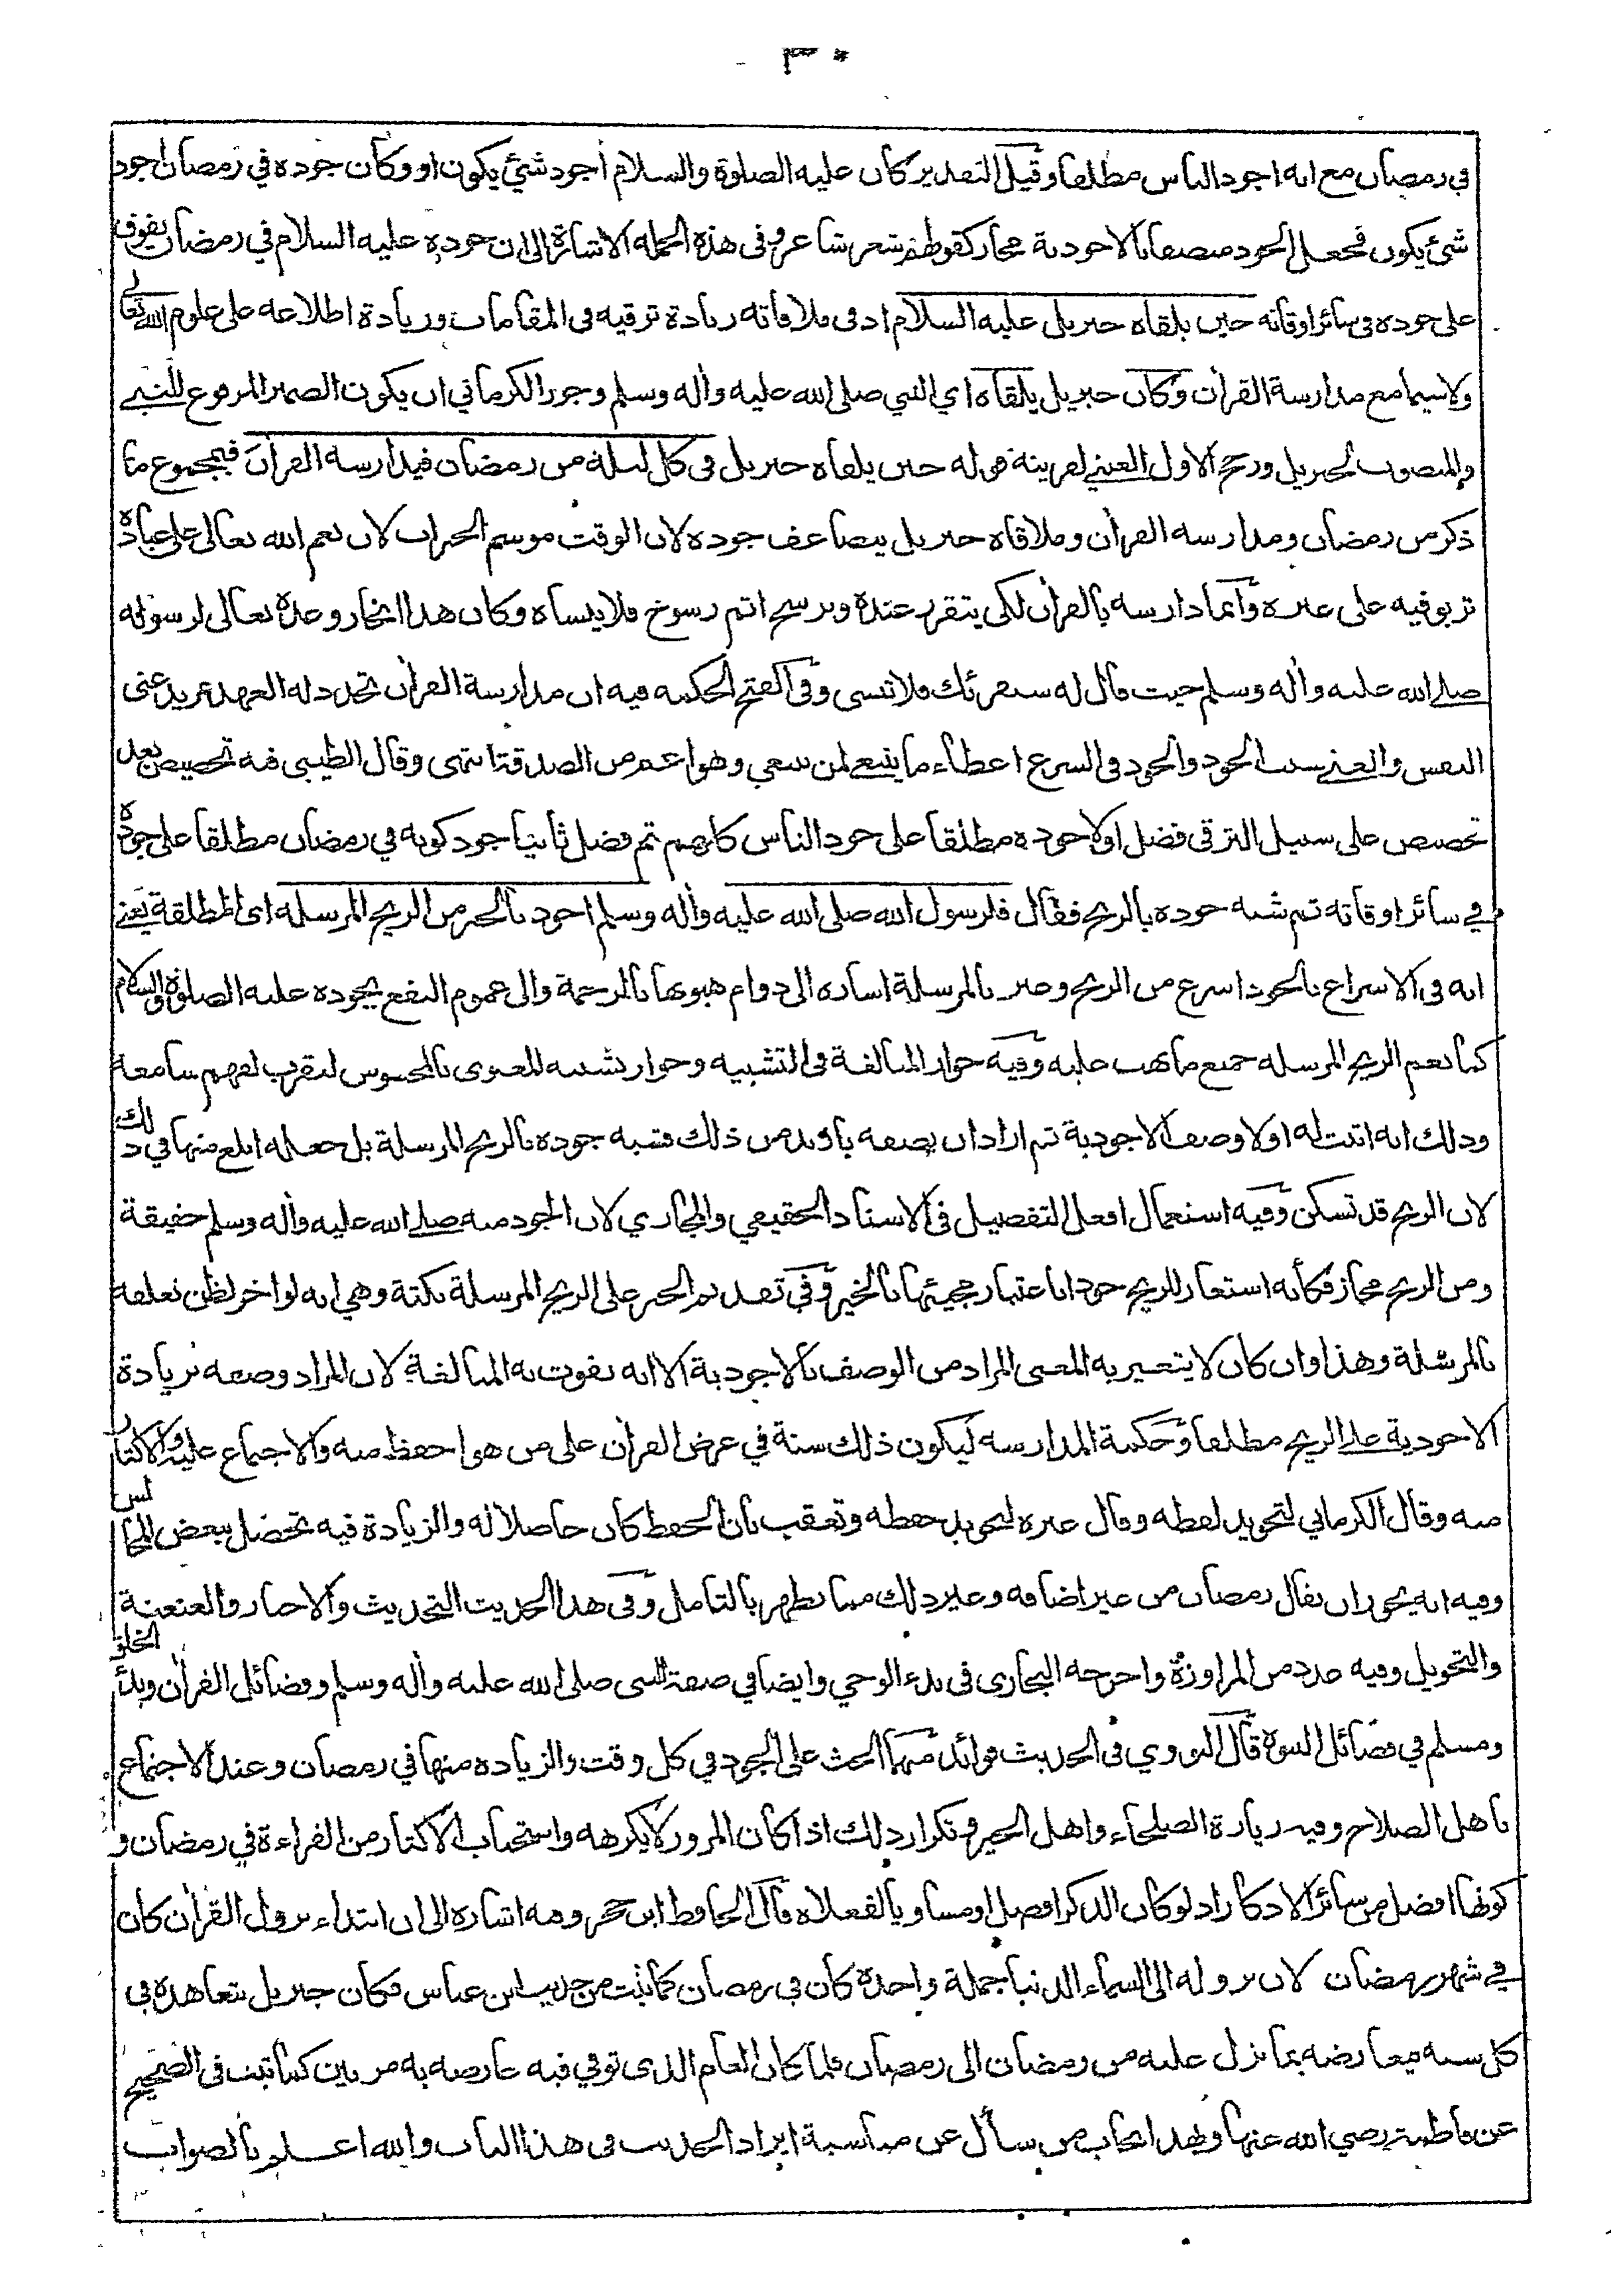 ٣٠
في رمضان مع انه اجود الناس مطلقا وقيل التقدير كان عليه الصلوة والسلام اجود شئ يكون او وكان جوده في رمضان اجود
شئ يكون فجعل الجود متصفا بالاجودية مجازا كقولهم شعر شاعر وفي هذه الجملة الاشارة الى ان جوده عليه السلام في رمضان يفوق
على جوده في سائر اوقاته حين يلقاه جبريل عليه السلام اذ في ملاقاته زيادة ترقيه في المقامات وزيادة اطلاعه على علوم الله تعالى
ولا سيما مع مدارسة القرآن وكان جبريل يلقاه اي النبي صلى الله عليه وآله وسلم وجوز الكرماني ان يكون الضمير المرفوع للنبي
والمنصوب لجبريل ورجح الاول العيني لقرينة قوله حين يلقاه جبريل في كل ليلة من رمضان فيدارسه القرآن فبمجموع ما
ذكر من رمضان ومدارسه القرآن وملاقاه جبريل يتضاعف جوده لان الوقت موسم الخيرات لان نعم الله تعالى على عباده
تربو فيه على غيره وانما دارسه بالقرآن لكي يتقرر عنده ويرسخ اتم رسوخ فلا ينساه وكان هذا انجاز وعده تعالى لرسوله
صلى الله عليه وآله وسلم حيث قال له سنقرئك فلا تنسى وفي الفتح الحكمة فيه ان مدارسة القرآن تجدد له العهد بمزيد غنى
النفس والغنى سبب الجود والجود في الشرع اعطاء ما ينبغي لمن ينبغي وهو اعم من الصدقة انتهى وقال الطيبي فيه تخصيص بعد
تخصيص على سبيل الترقي فضل اولا جوده مطلقا على جود الناس كلهم ثم فضل ثانيا جود كونه في رمضان مطلقا على جوده
في سائر اوقاته ثم شبه جوده بالريح فقال فلرسول الله صلى الله عليه وآله وسلم اجود بالخير من الريح المرسلة اي المطلقة يعني
انه في الاسراع بالجود اسرع من الريح وعبر بالمرسلة اشاره الى دوام هبوبها بالرحمة والى عموم النفع بجوده عليه الصلوة والسلام
كما تعم الريح المرسلة جميع ما تهب عليه وفيه جواز المبالغة في التشبيه وجواز تشبيه المعنوي بالمحسوس ليقرب لفهم سامعه
وذلك انه اثبت له اولا وصف الاجودية ثم اراد ان يصفه بازيد من ذلك فشبه جوده بالريح المرسلة بل جعله ابلغ منها في ذلك
لان الريح قد تسكن وفيه استعمال افعل التفضيل في الاسناد الحقيقي والمجازي لان الجود منه صلى الله عليه وآله وسلم حقيقة
ومن الريح مجاز فكأنه استعار للريح جودا باعتبار مجيئها بالخير وفي تقديم الخير على الريح المرسلة نكتة وهي انه لو اخر لظن تعلقه
بالمرسلة وهذا وان كان لا يتغير به المعنى المراد من الوصف بالاجودية الا انه تفوت به المبالغة لان المراد وصفه بزيادة
الاجودية على الريح مطلقا وحكمة المدارسة ليكون ذلك سنة في عرض القرآن على من هو احفظ منه والاجتماع عليه والاكثار
منه وقال الكرماني لتجويد لفظه وقال غيره لتجويد حفظه وتعقب بان الحفظ كان حاصلا له والزيادة فيه تحصل ببعض المجالس
وفيه انه يجوز ان يقال رمضان من غير اضافه وغير ذلك مما يظهر بالتامل وفي هذا الحديث التحديث والاخبار والعنعنة
والتحويل وفيه عدد من المراوزة واخرجه البخاري في بدء الوحي وايضا في صفة النبي صلى الله عليه وآله وسلم وفضائل القرآن وبدأ الخلق
ومسلم في فضائل النبوة قال النووي في الحديث فوائد منها الحث على الجود في كل وقت والزيادة منها في رمضان وعند الاجتماع
باهل الصلاح وفيه زيارة الصلحاء واهل الخير وتكرار ذلك اذا كان المزور لا يكرهه واستحباب الاكثار من القراءة في رمضان و
كونها افضل من سائر الاذكار اذ لو كان الذكر افضل او مساويا لفعلاه قال الحافظ ابن حجر وفيه اشارة الى ان ابتداء نزول القرآن كان
في شهر رمضان لان نزوله الى السماء الدنيا جملة واحدة كان في رمضان كما ثبت من حديث ابن عباس فكان جبريل يتعاهده في
كل سنة فيعارضه بما نزل عليه من رمضان الى رمضان فلما كان العام الذي توفي فيه عارضه به مرتين كما ثبت في الصحيح
عن فاطمة رضي الله عنها وبهذا يجاب من سأل عن مناسبة ايراد الحديث في هذا الباب والله اعلم بالصواب